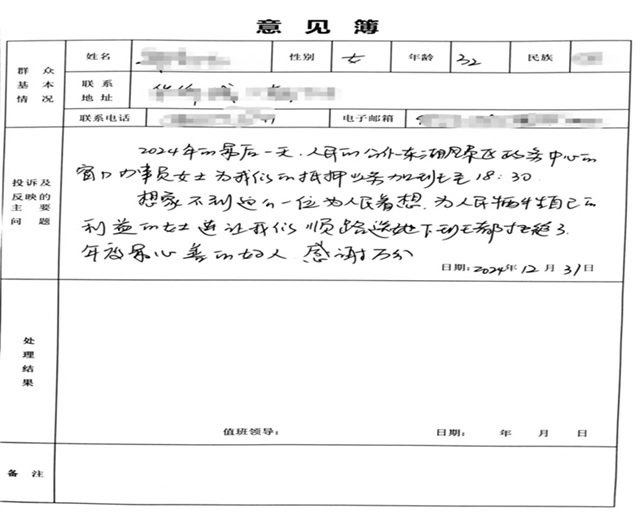 意见簿
群众基本情况 姓名 性别 女 年龄 32 民族
联系地址
联系电话 电子邮箱
投诉及反映的主要问题
2024年的最后一天，人民的公仆东湖风景区政务中心的
窗口办事员女士为我们的抵押业务加班到至18:30
想象不到这么一位为人民着想，为人民牺牲自己的
利益的女士连让我们顺路送她下班都拒绝了
年度最心善的女人 感谢万分
日期：2024年12月31日
处理结果
值班领导： 日期： 年 月 日
备注